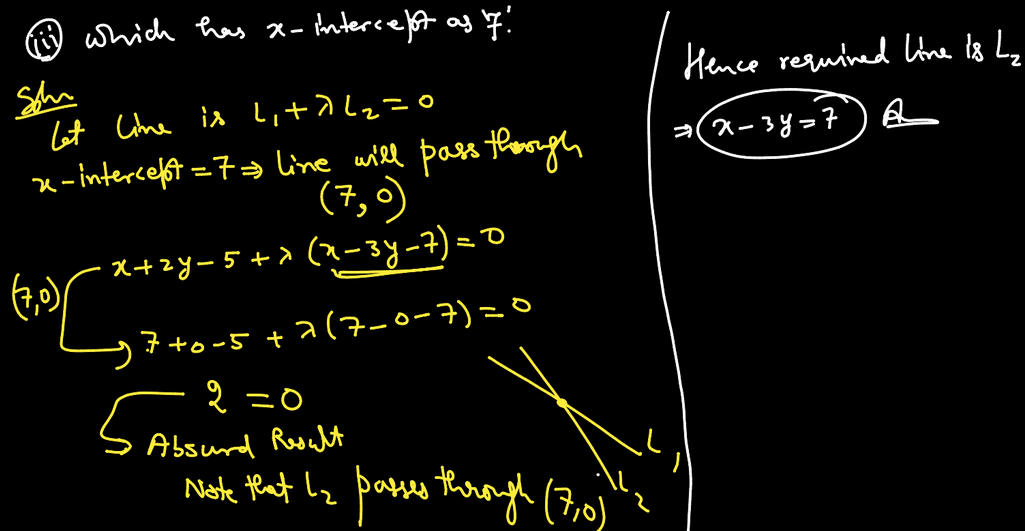 (iii) which has x-intercept as 7.
Soln
Let line is L₁ + λ L₂ = 0
x-intercept = 7 ⇒ line will pass through
(7, 0)
x + 2y - 5 + λ (x - 3y - 7) = 0
(7,0)
7 + 0 - 5 + λ (7 - 0 - 7) = 0
2 = 0
Absurd Result
Note that L₂ passes through (7,0)
L₁
L₂
Hence required line is L₂
⇒ x - 3y = 7